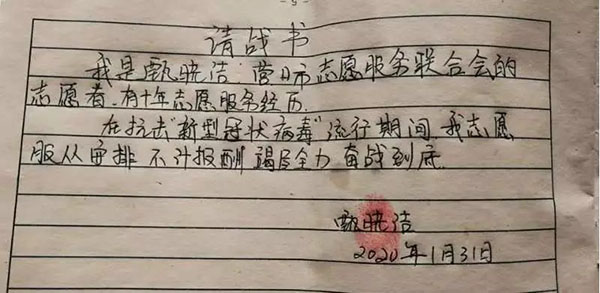 请战书
我是甄晓洁 营口市志愿服务联合会的
志愿者.有十年志愿服务经历.
在抗击"新型冠状病毒"流行期间 我志愿
服从安排 不计报酬 竭尽全力 奋战到底.
甄晓洁
2020年1月31日